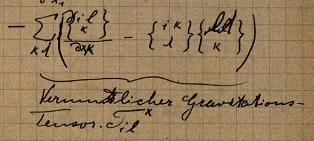 − ∑κl ( ∂{i l κ} / ∂xκ − {i κ λ}{λ l κ} )
Vermutlicher Gravitations-
tensor. T_il^x